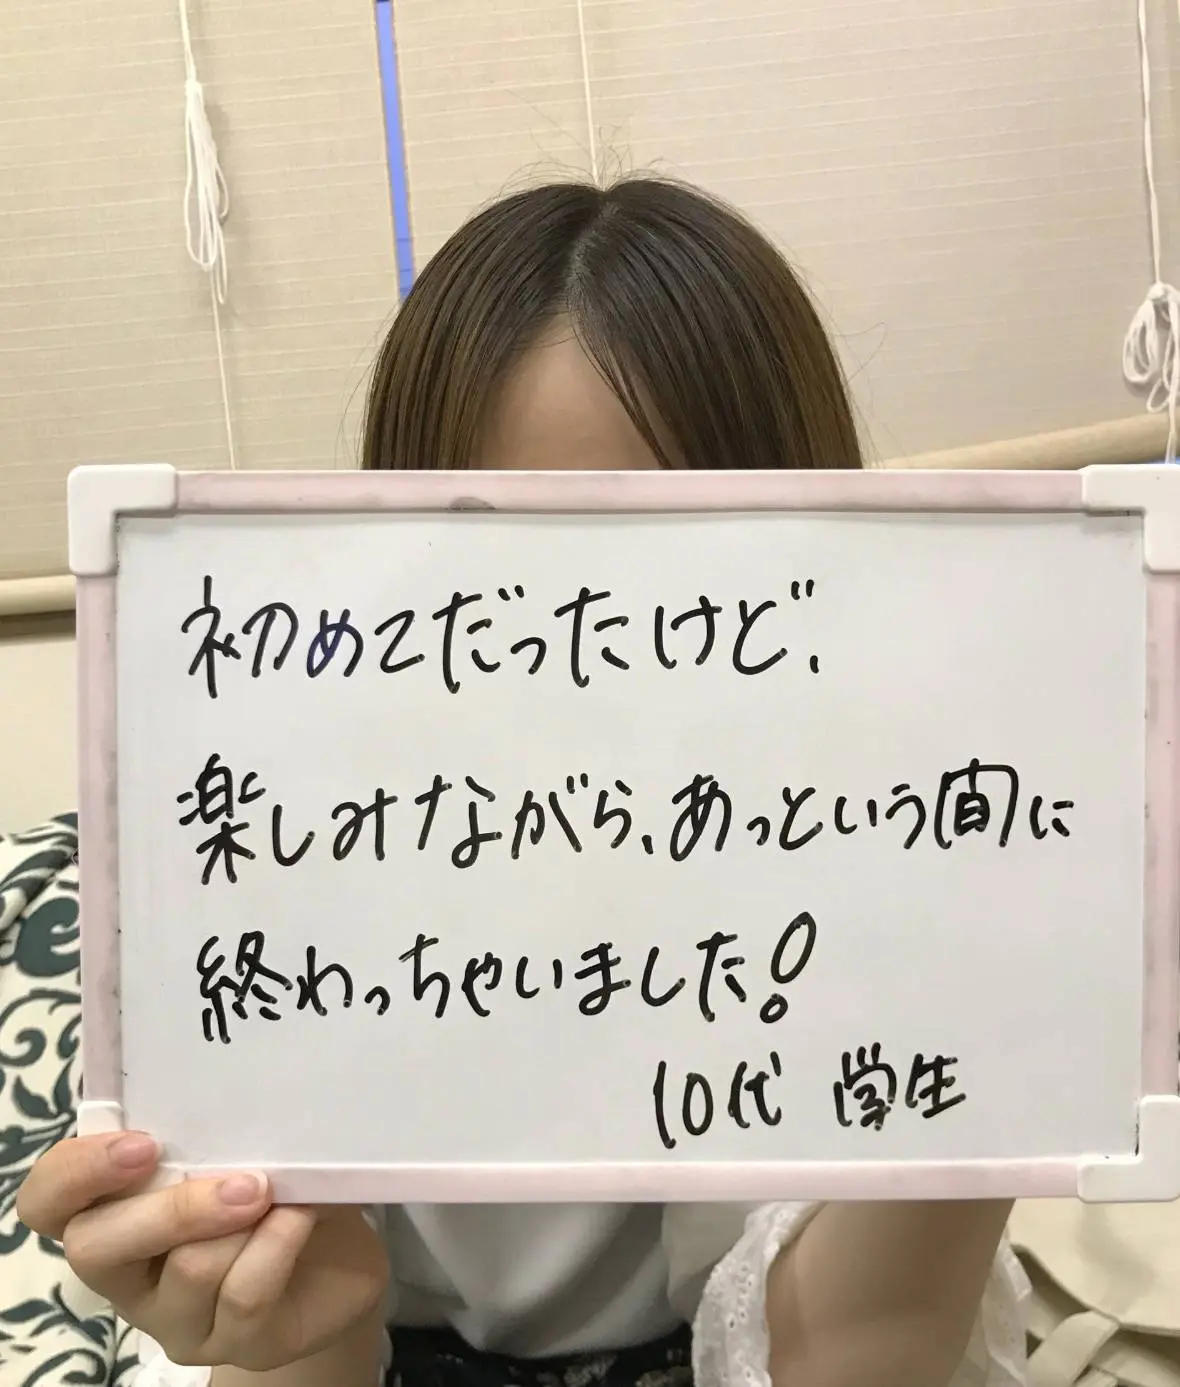 初めてだったけど、
楽しみながら、あっという間に
終わっちゃいました!
10代 学生